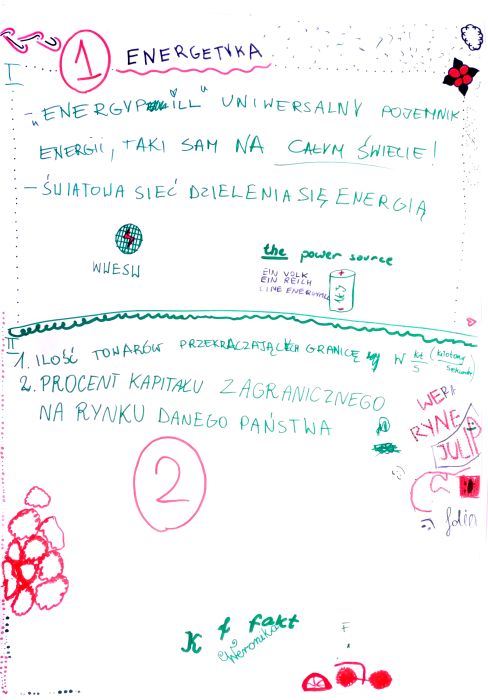 I
1
ENERGETYKA
- "ENERGYPILL" UNIWERSALNY POJEMNIK
ENERGII, TAKI SAM NA CAŁYM ŚWIECIE!
- ŚWIATOWA SIEĆ DZIELENIA SIĘ ENERGIĄ
WWESW
the power source
EIN VOLK
EIN REICH
EINE ENERGYPILL
II
1. ILOŚĆ TOWARÓW PRZEKRACZAJĄCYCH GRANICĘ W kt/s (kilotony/sekundę)
2. PROCENT KAPITAŁU ZAGRANICZNEGO
NA RYNKU DANEGO PAŃSTWA
WERA
RYNE
JUL
2
K f fakt
Weronika
F